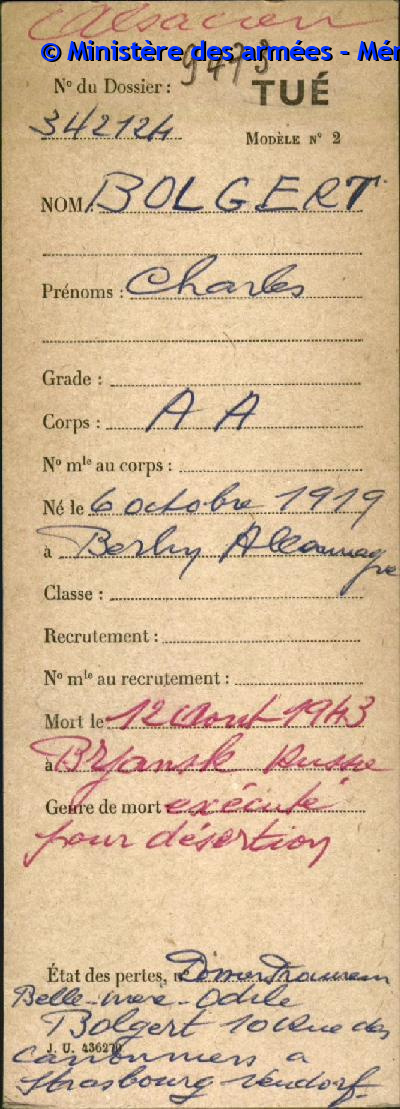 Alsacien
© Ministère des armées - Mém
9473
N° du Dossier :
TUÉ
342124
MODÈLE N° 2
NOM : BOLGERT
Prénoms : Charles
Grade :
Corps : A A
N° mle au corps :
Né le 6 octobre 1919
à Berlin Allemagne
Classe :
Recrutement :
N° mle au recrutement :
Mort le 12 Aout 1943
à Bryansk Russie
Genre de mort exécuté
pour désertion
État des pertes, n°
Belle-mere - Odile
Bolgert 10 Rue des
J. U. 436270
Canonniers a
Strasbourg Neudorf